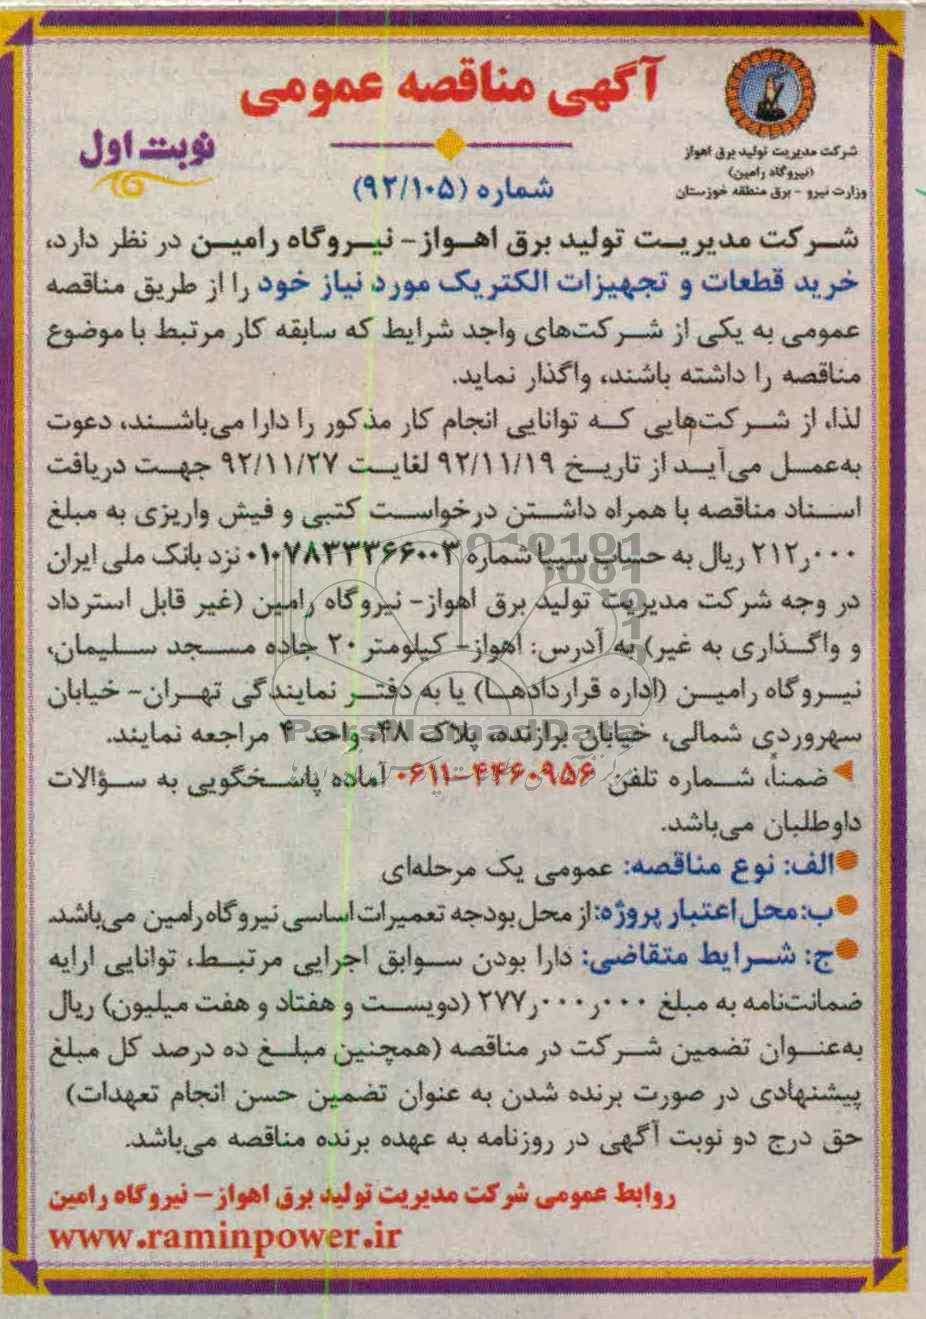 آگهی مناقصه عمومی
نوبت اول
شماره (۹۲/۱۰۵)
شرکت مدیریت تولید برق اهواز
(نیروگاه رامین)
وزارت نیرو - برق منطقه خوزستان
شرکت مدیریت تولید برق اهواز- نیروگاه رامین در نظر دارد،
خرید قطعات و تجهیزات الکتریک مورد نیاز خود را از طریق مناقصه
عمومی به یکی از شرکت‌های واجد شرایط که سابقه کار مرتبط با موضوع
مناقصه را داشته باشند، واگذار نماید.
لذا، از شرکت‌هایی که توانایی انجام کار مذکور را دارا می‌باشند، دعوت
به‌عمل می‌آید از تاریخ ۹۲/۱۱/۱۹ لغایت ۹۲/۱۱/۲۷ جهت دریافت
اسناد مناقصه با همراه داشتن درخواست کتبی و فیش واریزی به مبلغ
۲۱۲ر۰۰۰ ریال به حساب سیبا شماره ۰۱۰۷۸۳۳۳۶۶۰۰۳ نزد بانک ملی ایران
در وجه شرکت مدیریت تولید برق اهواز- نیروگاه رامین (غیر قابل استرداد
و واگذاری به غیر) به آدرس: اهواز- کیلومتر ۲۰ جاده مسجد سلیمان،
نیروگاه رامین (اداره قراردادها) یا به دفتر نمایندگی تهران- خیابان
سهروردی شمالی، خیابان برازنده، پلاک ۴۸، واحد ۴ مراجعه نمایند.
ضمناً، شماره تلفن ۴۴۶۰۹۵۶-۰۶۱۱ آماده پاسخگویی به سؤالات
داوطلبان می‌باشد.
الف: نوع مناقصه: عمومی یک مرحله‌ای
ب: محل اعتبار پروژه: از محل بودجه تعمیرات اساسی نیروگاه رامین می‌باشد.
ج: شرایط متقاضی: دارا بودن سوابق اجرایی مرتبط، توانایی ارایه
ضمانت‌نامه به مبلغ ۲۷۷ر۰۰۰ر۰۰۰ (دویست و هفتاد و هفت میلیون) ریال
به‌عنوان تضمین شرکت در مناقصه (همچنین مبلغ ده درصد کل مبلغ
پیشنهادی در صورت برنده شدن به عنوان تضمین حسن انجام تعهدات)
حق درج دو نوبت آگهی در روزنامه به عهده برنده مناقصه می‌باشد.
روابط عمومی شرکت مدیریت تولید برق اهواز – نیروگاه رامین
www.raminpower.ir
ParsNamadData